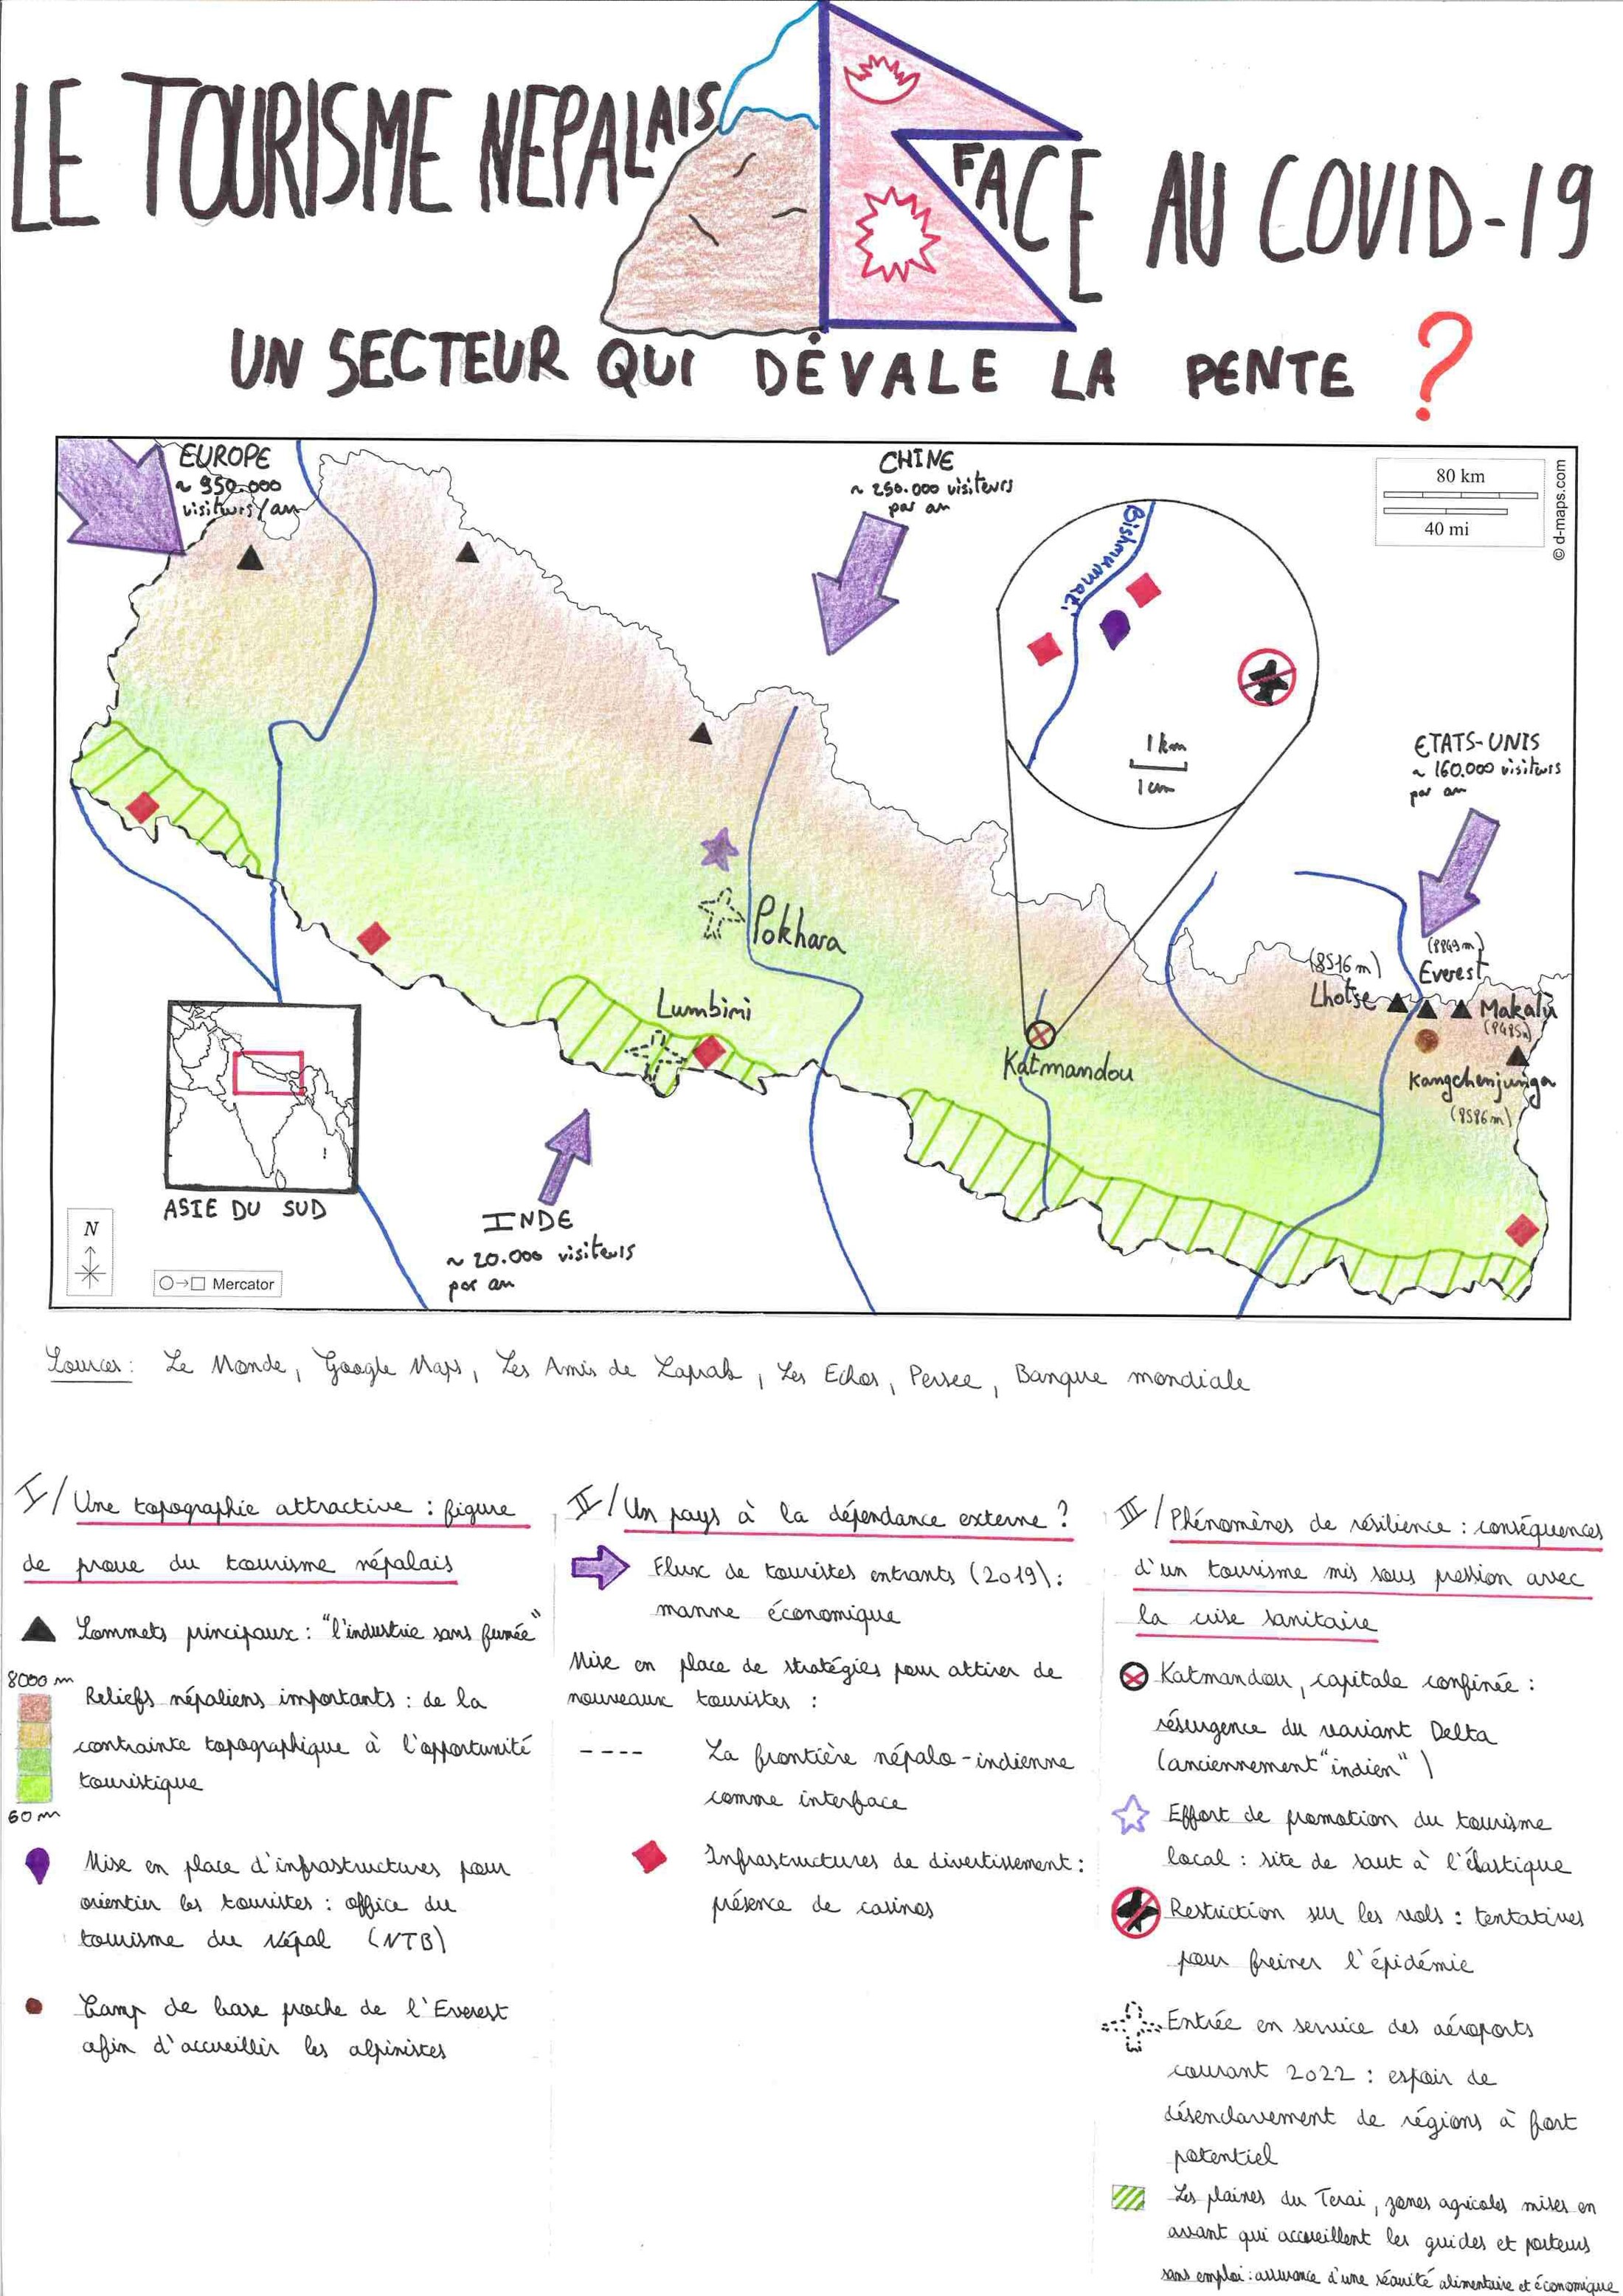 LE TOURISME NEPALAIS FACE AU COVID-19
UN SECTEUR QUI DÉVALE LA PENTE ?
EUROPE
~ 950.000
visiteurs/an
CHINE
~ 250.000 visiteurs
par an
80 km
40 mi
© d-maps.com
Bishnumati
1 km
1 cm
ETATS-UNIS
~ 160.000 visiteurs
par an
Pokhara
(8516 m)
Lhotse
(8849 m)
Everest
Makalu
(8485m)
Kangchenjunga
(8586 m)
Lumbini
Katmandou
ASIE DU SUD
INDE
~ 20.000 visiteurs
par an
N
Mercator
Sources : Le Monde, Google Maps, Les Amis de Laprak, Les Echos, Persee, Banque mondiale
I/ Une topographie attractive : figure
de proue du tourisme népalais
Sommets principaux : "l'industrie sans fumée"
8000 m
Reliefs népaliens importants : de la
contrainte topographique à l'opportunité
touristique
60 m
Mise en place d'infrastructures pour
orienter les touristes : office du
tourisme du Népal (NTB)
Camp de base proche de l'Everest
afin d'accueillir les alpinistes
II/ Un pays à la dépendance externe ?
Flux de touristes entrants (2019) :
manne économique
Mise en place de stratégies pour attirer de
nouveaux touristes :
La frontière népalo-indienne
comme interface
Infrastructures de divertissement :
présence de casinos
III/ Phénomènes de résilience : conséquences
d'un tourisme mis sous pression avec
la crise sanitaire
Katmandou, capitale confinée :
résurgence du variant Delta
(anciennement "indien")
Effort de promotion du tourisme
local : site de saut à l'élastique
Restriction sur les vols : tentatives
pour freiner l'épidémie
Entrée en service des aéroports
courant 2022 : espoir de
désenclavement de régions à fort
potentiel
Les plaines du Terai, zones agricoles mises en
avant qui accueillent les guides et porteurs
sans emploi : assurance d'une sécurité alimentaire et économique